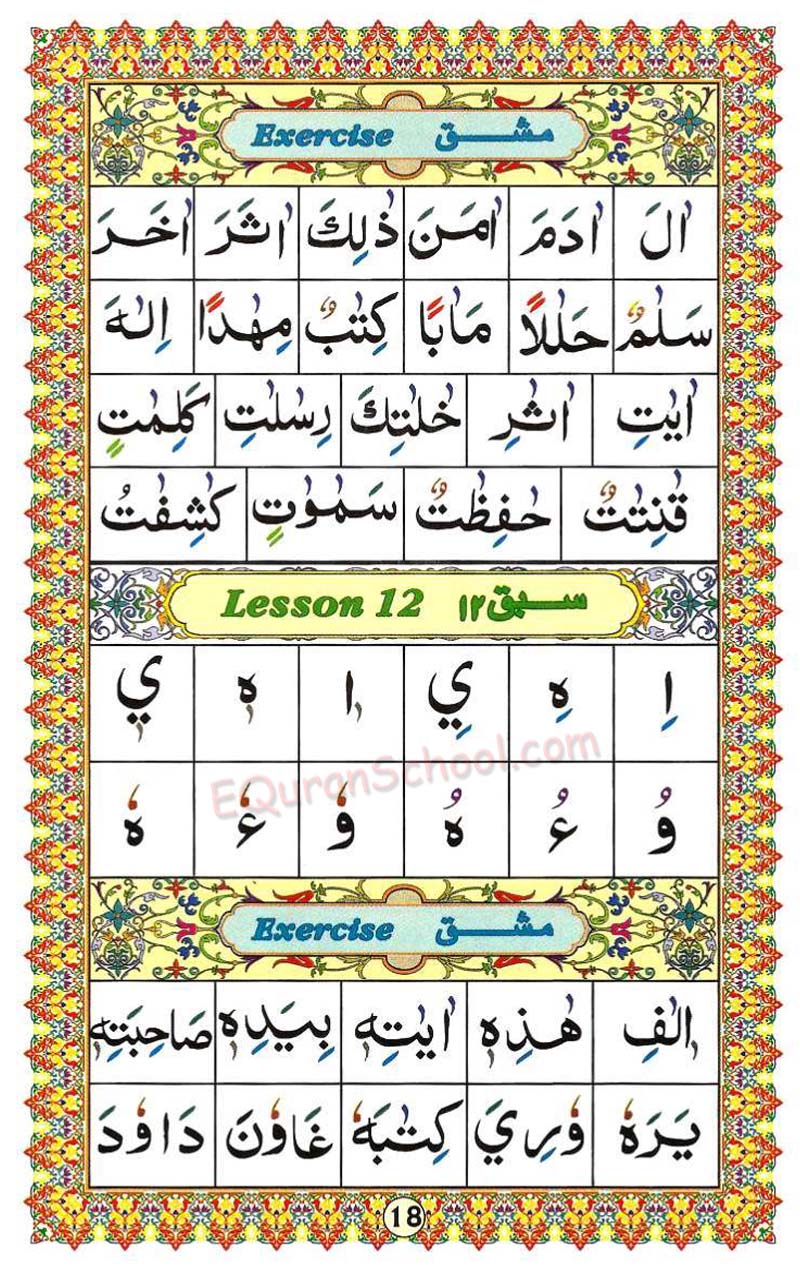 Exercise مشق
اٰلَ اٰدَمَ اٰمَنَ ذٰلِكَ اٰثَرَ اٰخَرَ
سَلٰمٌ حَلٰلًا مَاٰبًا كِتٰبٌ مِهٰدًا اِلٰهَ
اٰيٰتِ اٰثٰرِ خٰلٰتِكَ رِسٰلٰتِ كَلِمٰتٍ
قٰنِتٰتٌ حٰفِظٰتٌ سَمٰوٰتٍ كٰشِفٰتُ
Lesson 12 سبق ۱۲
اِ هِ يِ اٖ هٖ يٖ
وُ ءُ هُ وٗ ءٗ هٗ
EQuranSchool.com
Exercise مشق
اٖلٰفِ هٰذِهٖ اٰيٰتِهٖ بِيَدِهٖ صَاحِبَتِهٖ
يَرَهٗ وٗرِيَ كِتٰبَهٗ غَاوٗنَ دَاوٗدَ
18